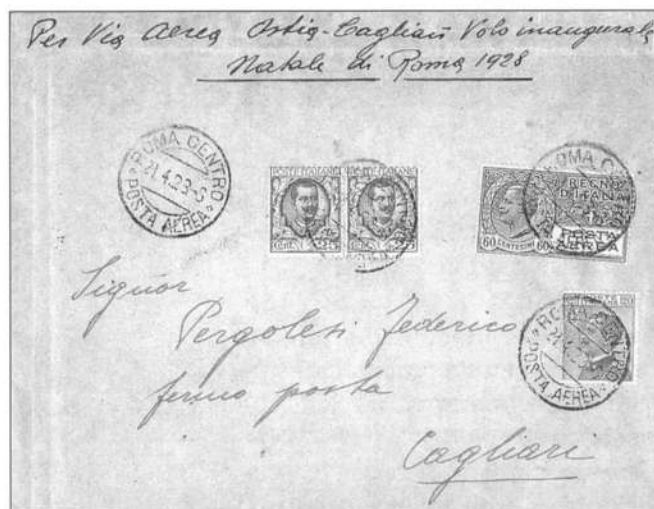 Per Via Aerea Ostia-Cagliari Volo inaugurale
Natale di Roma 1928
ROMA CENTRO
21.4.28-8
POSTA AEREA
POSTE ITALIANE
POSTE ITALIANE
ROMA C
REGNO
D'ITALIA
POSTA
AEREA
60 CENTESIMI 60
Signor
Pergolesi Federico
fermo posta
Cagliari
ROMA CENTRO
POSTA AEREA